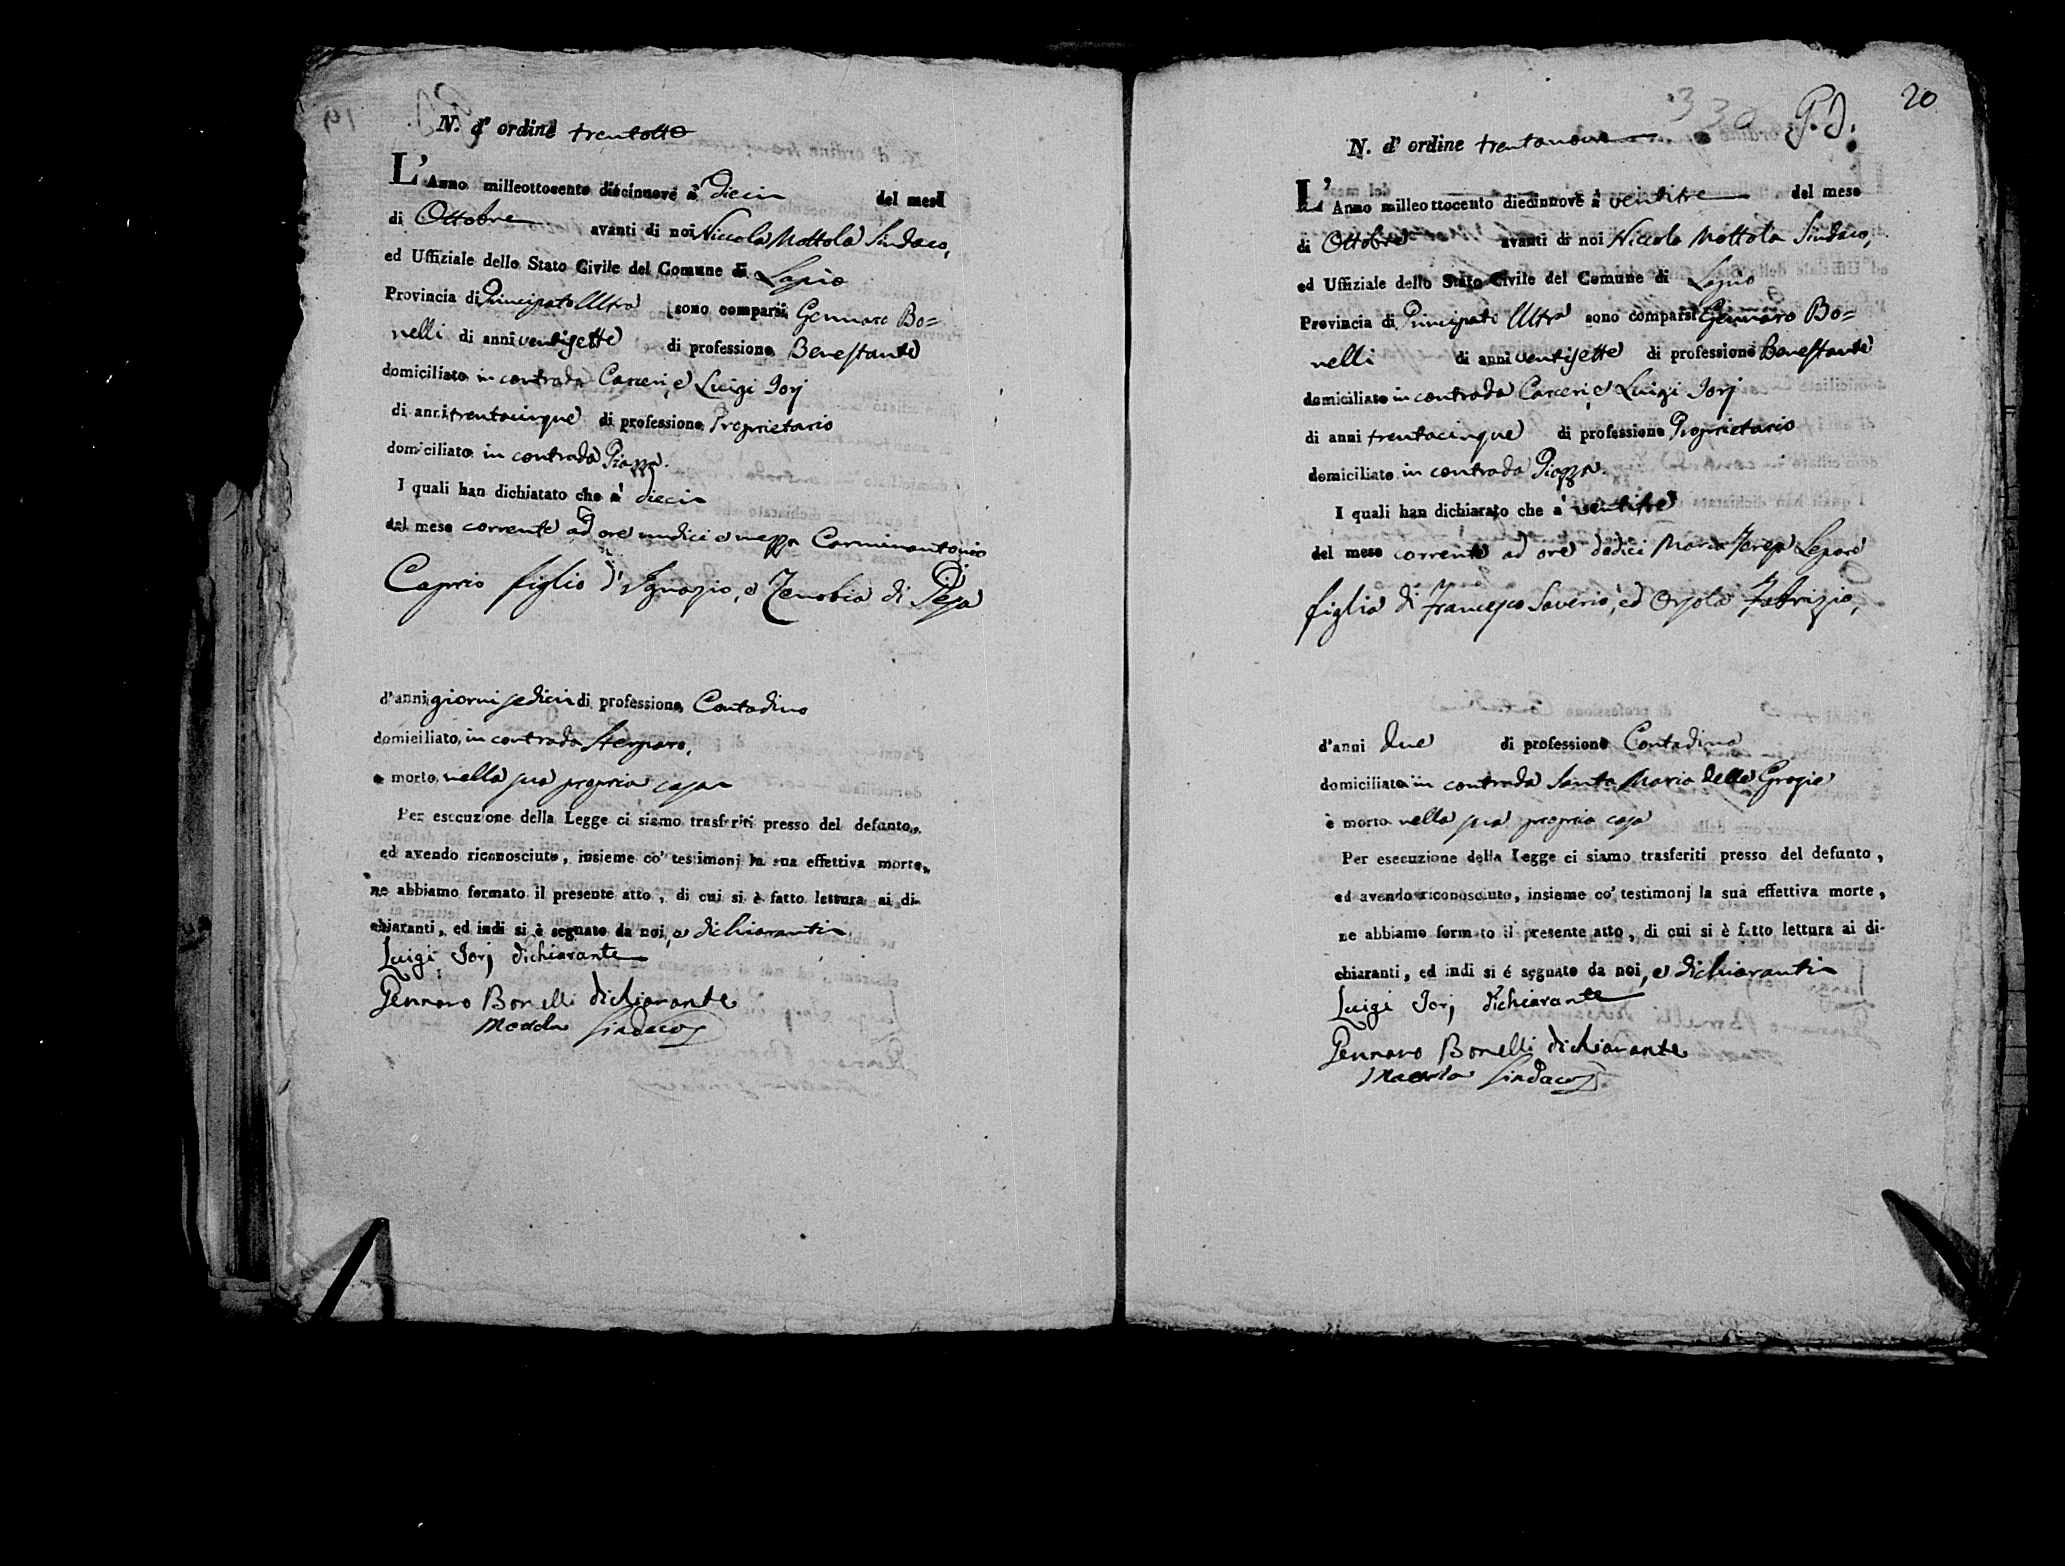 N. d' ordine trentotto
L'Anno milleottocento diecinnove à dieci del mese
di Ottobre avanti di noi Niccola Mottola Sindaco,
ed Uffiziale dello Stato Civile del Comune di Lapio
Provincia di Principato Ultra sono comparsi Gennaro Bo=
nelli di anni ventisette di professione Benestante
domiciliato in contrada Carceri, e Luigi Iorj
di anni trentacinque di professione Proprietario
domiciliato in contrada Piazza.
I quali han dichiatato che a' dieci
del mese corrente ad ore undici e mezza Carminantonio
Caprio figlio d'Ignazio, e Zenobia di Pesa
d'anni giorni sedici di professione Contadino
domiciliato in contrada Sterparo,
è morto nella sua propria casa
Per esecuzione della Legge ci siamo trasferiti presso del defunto,
ed avendo riconosciuto, insieme co' testimonj la sua effettiva morte,
ne abbiamo formato il presente atto, di cui si è fatto lettura ai di-
chiaranti, ed indi si è segnato da noi, e dichiaranti
Luigi Iorj dichiarante
Gennaro Bonelli dichiarante
Sindaco
20
P. D.
N. d' ordine trentanove
L'Anno milleottocento diecinnove à ventitre del mese
di Ottobre avanti di noi Niccola Mottola Sindaco,
ed Uffiziale dello Stato Civile del Comune di Lapio
Provincia di Principato Ultra sono comparsi Gennaro Bo=
nelli di anni ventisette di professione Benestante
domiciliato in contrada Carceri, e Luigi Iorj
di anni trentacinque di professione Proprietario
domiciliato in contrada Piazza.
I quali han dichiarato che a' ventitre
del mese corrente ad ore dodici Maria Teresa Lepore
figlia di Francesco Saverio, ed Orsola Fabrizio,
d'anni due di professione Contadina
domiciliata in contrada Santa Maria delle Grazie
è morto nella sua propria casa
Per esecuzione della Legge ci siamo trasferiti presso del defunto,
ed avendo riconosciuto, insieme co' testimonj la sua effettiva morte,
ne abbiamo formato il presente atto, di cui si è fatto lettura ai di-
chiaranti, ed indi si é segnato da noi, e dichiaranti
Luigi Iorj dichiarante
Gennaro Bonelli dichiarante
Sindaco